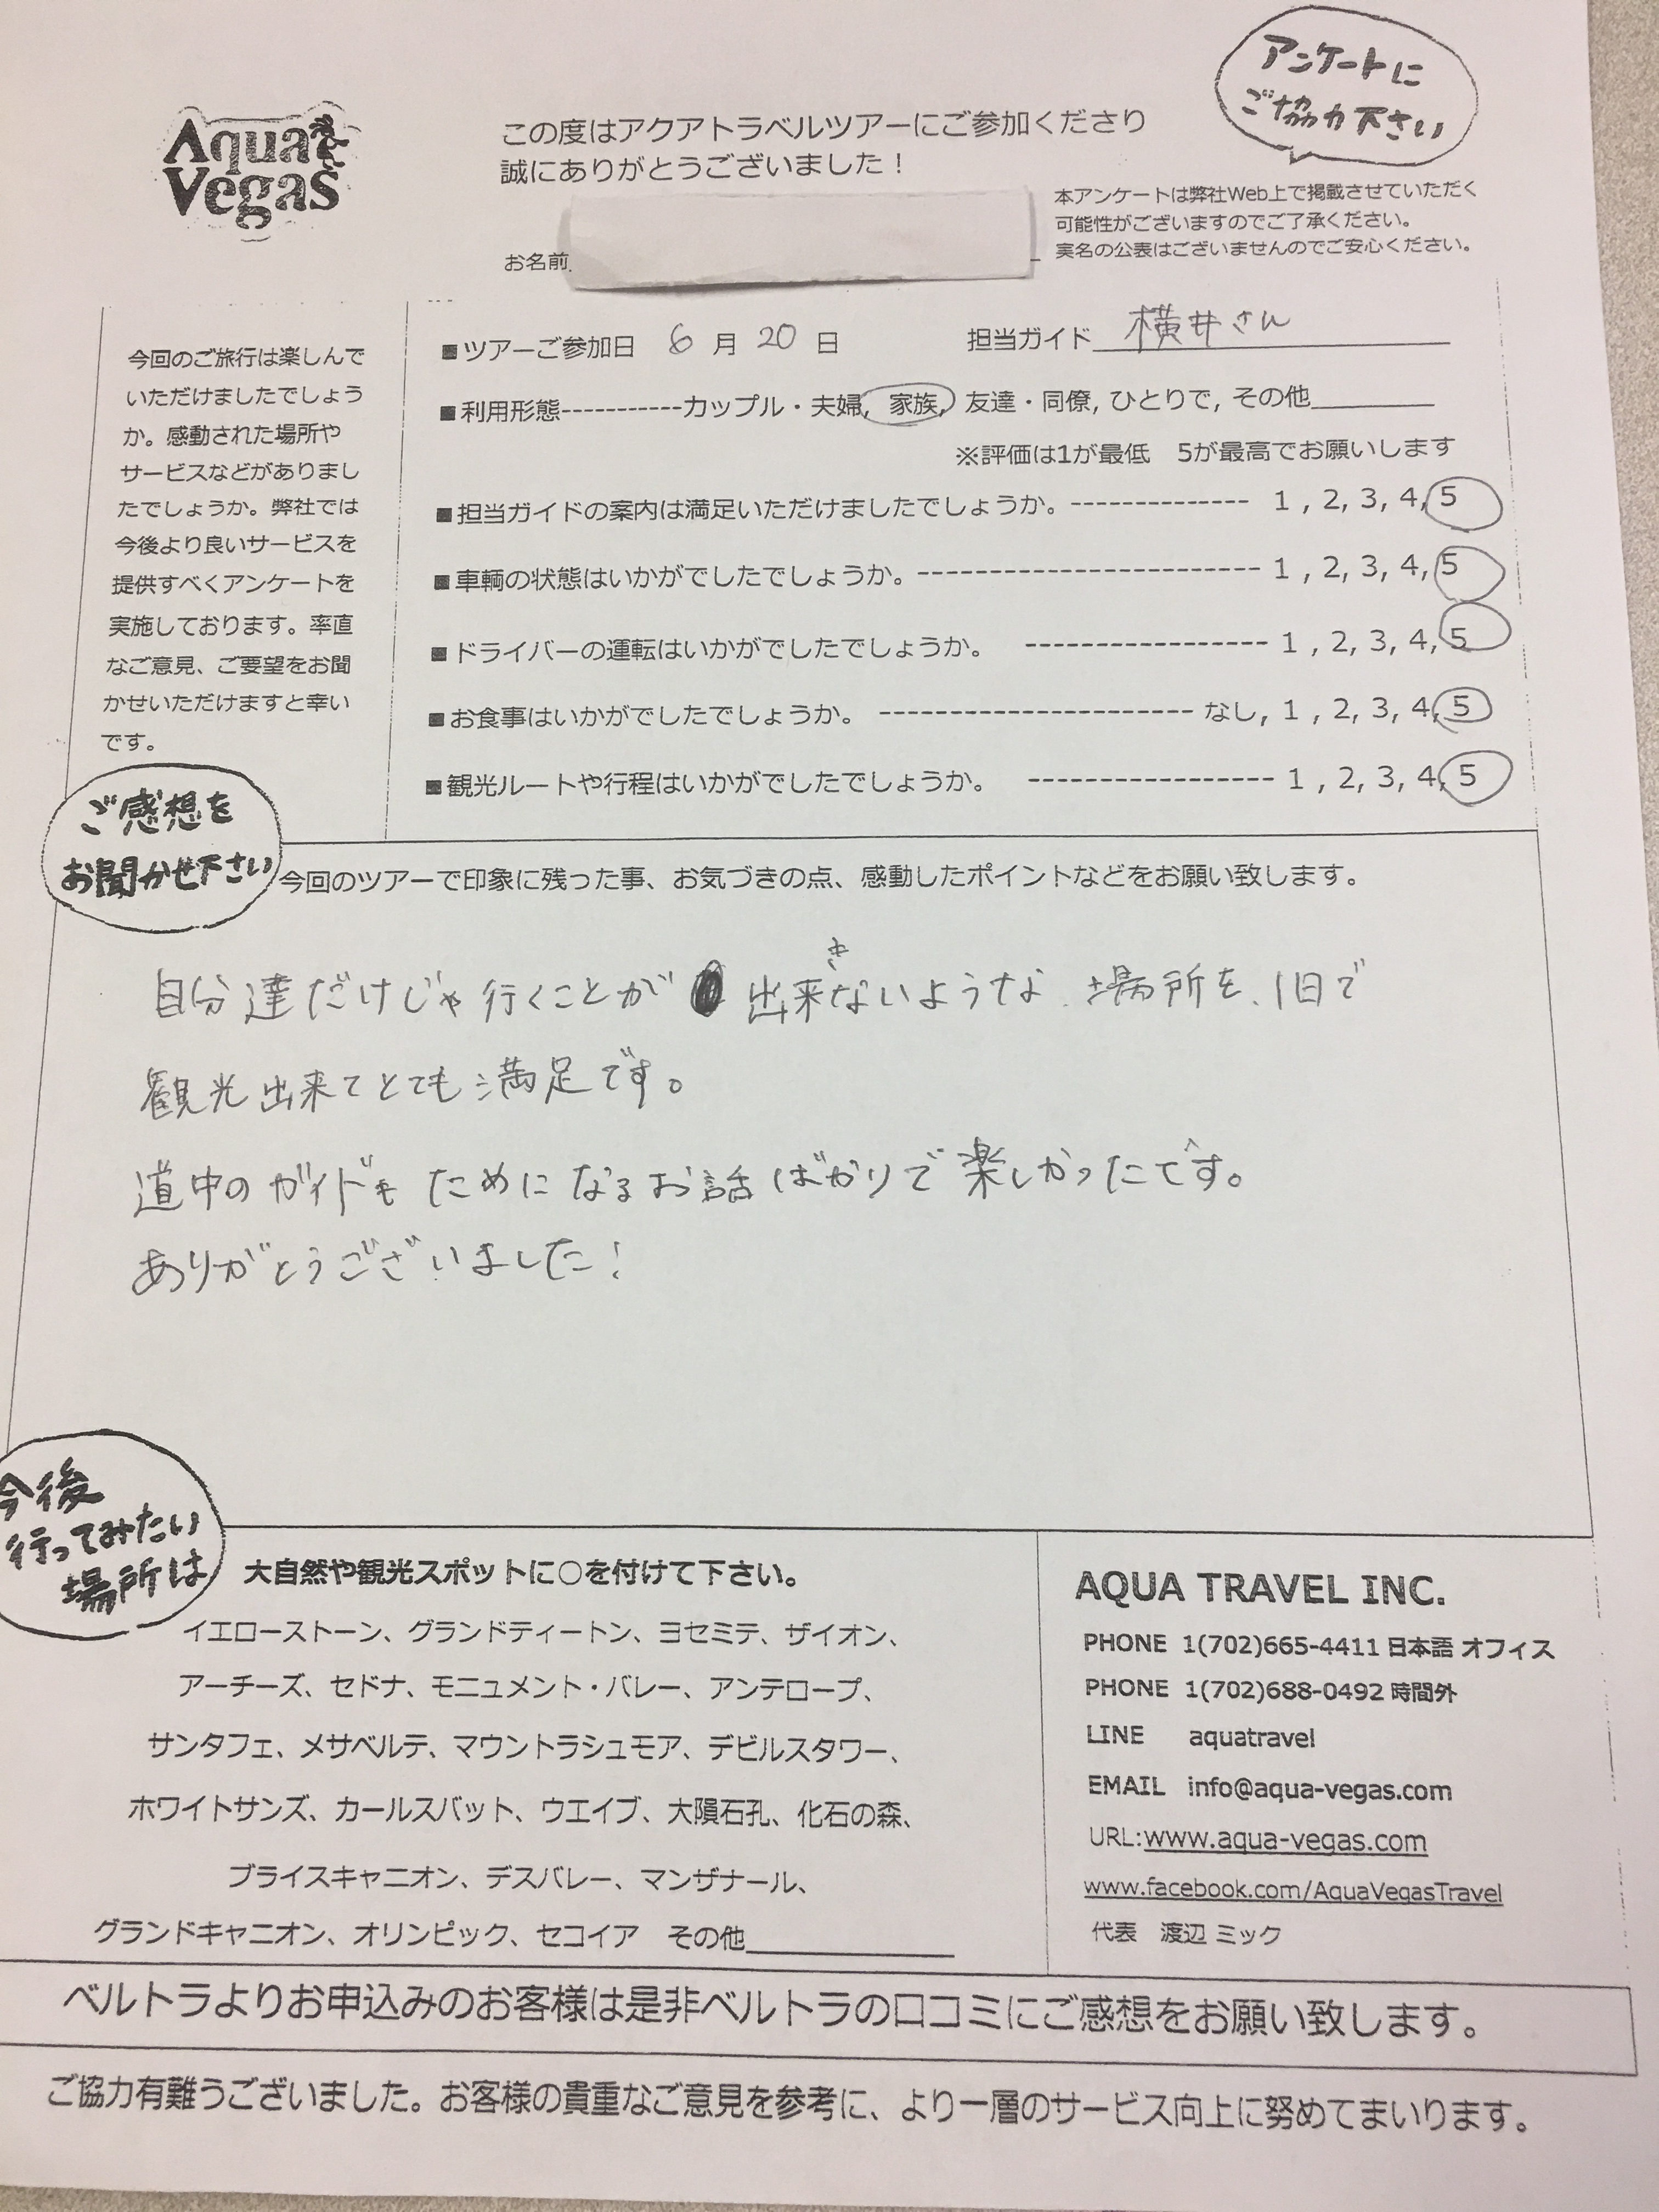 アンケートに
ご協力下さい
Aqua
Vegas
この度はアクアトラベルツアーにご参加くださり
誠にありがとうございました！
本アンケートは弊社Web上で掲載させていただく
可能性がございますのでご了承ください。
実名の公表はございませんのでご安心ください。
お名前
今回のご旅行は楽しんで
いただけましたでしょう
か。感動された場所や
サービスなどがありまし
たでしょうか。弊社では
今後より良いサービスを
提供すべくアンケートを
実施しております。率直
なご意見、ご要望をお聞
かせいただけますと幸い
です。
■ツアーご参加日 6 月 20 日 担当ガイド 横井さん
■利用形態-----------カップル・夫婦, 家族, 友達・同僚, ひとりで, その他
※評価は1が最低　5が最高でお願いします
■担当ガイドの案内は満足いただけましたでしょうか。------------- 1 , 2, 3, 4, 5
■車輌の状態はいかがでしたでしょうか。------------------------- 1 , 2, 3, 4, 5
■ドライバーの運転はいかがでしたでしょうか。 ----------------- 1 , 2, 3, 4, 5
■お食事はいかがでしたでしょうか。 ----------------------- なし, 1 , 2, 3, 4, 5
■観光ルートや行程はいかがでしたでしょうか。 ------------------ 1 , 2, 3, 4, 5
ご感想を
お聞かせ下さい
今回のツアーで印象に残った事、お気づきの点、感動したポイントなどをお願い致します。
自分達だけじゃ行くことが 出来きないような、場所を、1日で
観光出来てとても満足です。
道中のガイドもためになるお話ばかりで楽しかったです。
ありがとうございました！
今後
行ってみたい
場所は
大自然や観光スポットに○を付けて下さい。
イエローストーン、グランドティートン、ヨセミテ、ザイオン、
アーチーズ、セドナ、モニュメント・バレー、アンテロープ、
サンタフェ、メサベルテ、マウントラシュモア、デビルスタワー、
ホワイトサンズ、カールスバット、ウエイブ、大隕石孔、化石の森、
ブライスキャニオン、デスバレー、マンザナール、
グランドキャニオン、オリンピック、セコイア　その他
AQUA TRAVEL INC.
PHONE 1(702)665-4411 日本語 オフィス
PHONE 1(702)688-0492 時間外
LINE aquatravel
EMAIL info@aqua-vegas.com
URL:www.aqua-vegas.com
www.facebook.com/AquaVegasTravel
代表　渡辺 ミック
ベルトラよりお申込みのお客様は是非ベルトラの口コミにご感想をお願い致します。
ご協力有難うございました。お客様の貴重なご意見を参考に、より一層のサービス向上に努めてまいります。